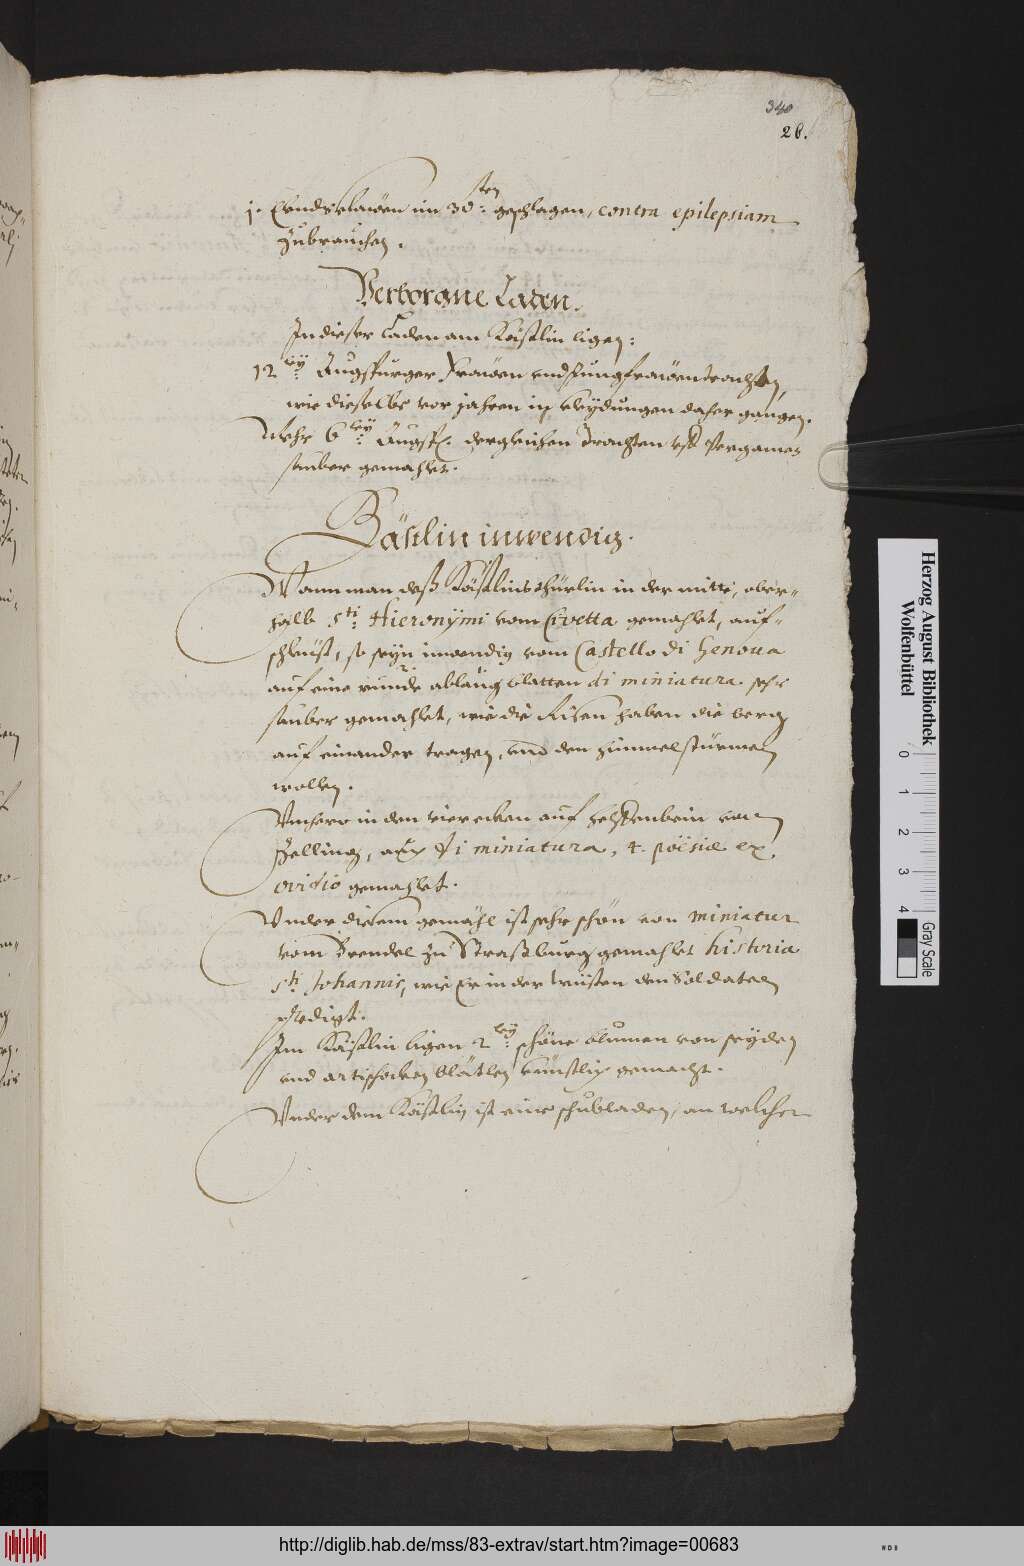 340
28.
1. Elendsklawen im 30.sten geschlagen, contra epilepsiam
zubrauchen.
Verborgne Laden.
In dieser Laden am Kästlin ligen:
12.ley Augspurger Frawen vnd Jungfrawen trachten,
wie dieselbe vor jahren in kleydungen daher gangen.
Mehr 6.ley Augsp. dergleichen trachten vff Pergament
sauber gemahlet.
Kästlin inwendig.
Wann man deß Kästlins thürlin in der mitte, ober-
halb Sti. Hieronymi vom Civetta gemahlet, auf-
schleüst, so seyn inwendig vom Castello di Genoua
auf eine runde ablang blatten di miniatura sehr
sauber gemahlet, wie die Risen haben die berg
auf einander tragen, vnd den himmel stürmen
wollen.
Vmher in den vier ecken auf helffenbein vom
 auch di miniatura, 4. poësiæ ex
ovidio gemahlet.
Vnder disem gemähl ist sehr schön von miniatur
vom Brendel zu Straßburg gemahlet historia
Sti. Johannis, wie Er in der Wüsten den Soldaten
predigt.
Im Kästlin ligen 2.ley schöne blumen von seyden
vnd artischocken blätlen künstlich gemacht.
Vnder dem Kästlin ist eine schubladen, an welcher
Herzog August Bibliothek
Wolfenbüttel
0 1 2 3 4
Gray Scale
http://diglib.hab.de/mss/83-extrav/start.htm?image=00683